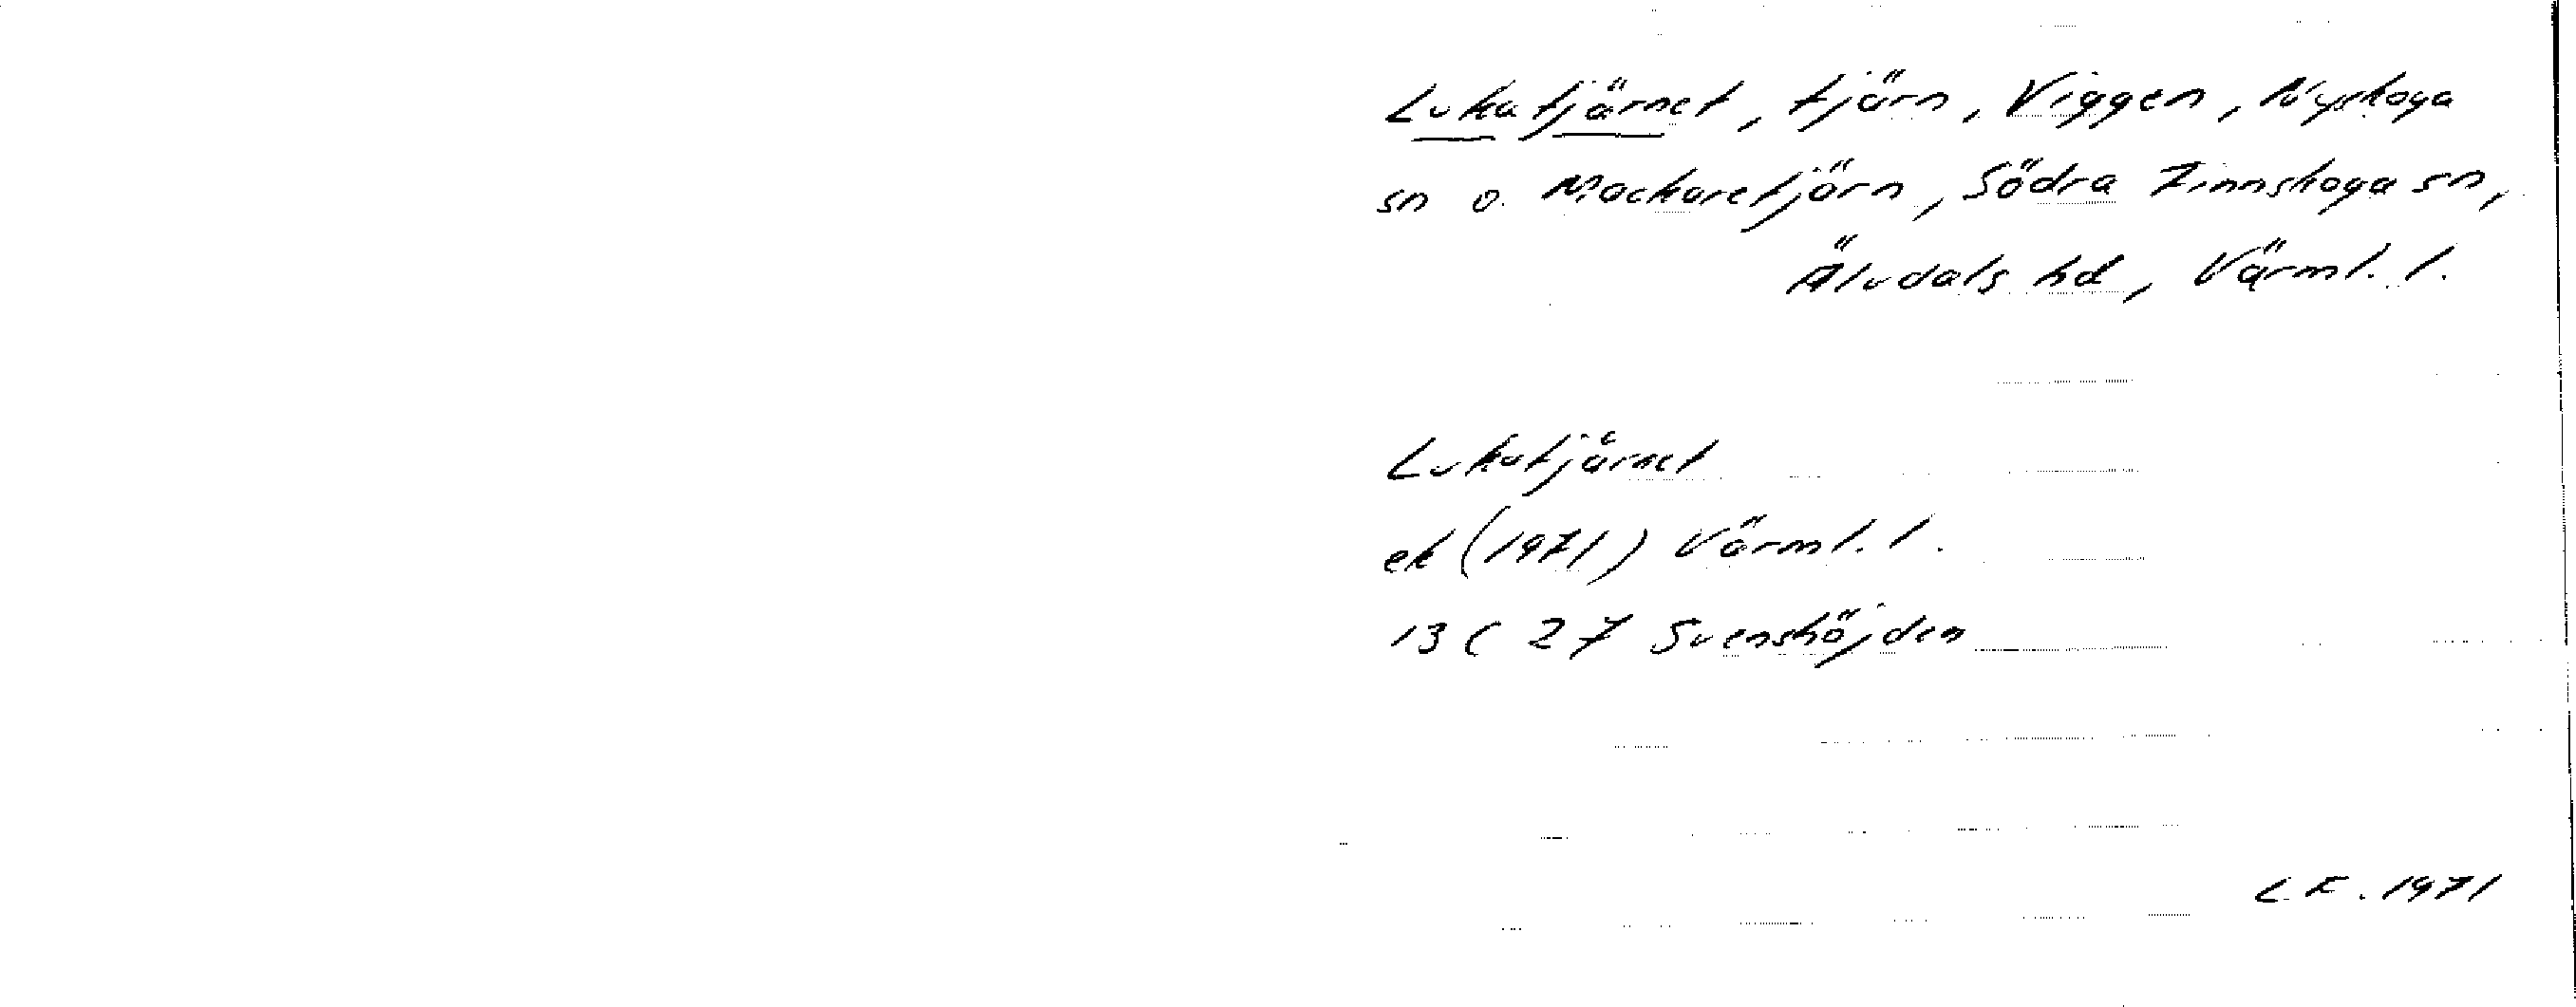 Lukatjärnet, tjärn, Viggen, Nyskoga
sn o. Mackaretjärn, Södra Finnskoga sn,
Älvdals hd, Värml. l.
Lukatjärnet
ek (1971) Värml. l.
13 C 2 7 Svenshöjden
L F. 1971